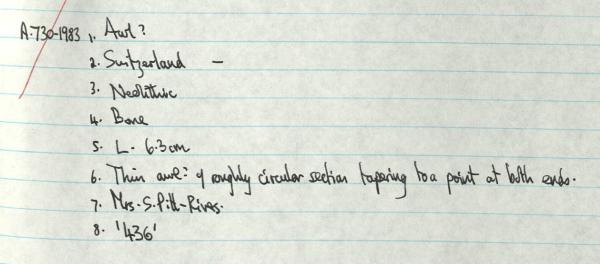 A.730-1983 1. Awl?
2. Switzerland –
3. Neolithic
4. Bone
5. L. 6.3cm
6. Thin awl? of roughly circular section tapering to a point at both ends.
7. Mrs. S. Pitt-Rivers.
8. '436'